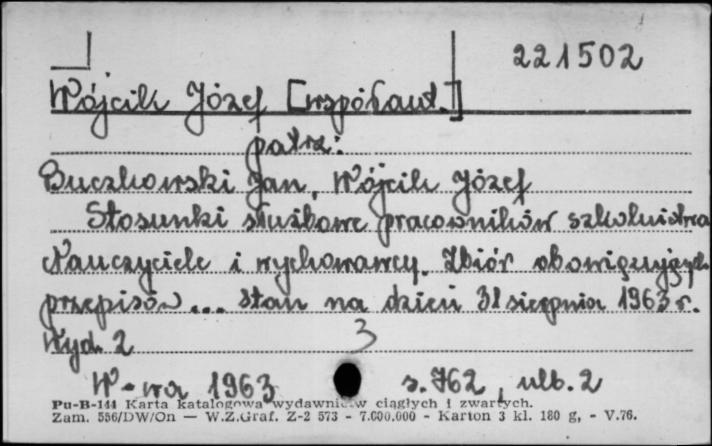 221502
Wójcik Józef [współaut.]
patrz:
Buczkowski Jan, Wójcik Józef
Stosunki służbowe pracowników szkolnictwa
Nauczyciele i wychowawcy. Zbiór obowiązujących
przepisów... Stan na dzień 31 sierpnia 1963 r.
Wyd. 2
3
W-wa 1963 s. 762, ulb. 2
Pu-B-144 Karta katalogowa wydawnictw ciągłych i zwartych.
Zam. 556/DW/On — W.Z.Graf. Z-2 573 - 7.000.000 - Karton 3 kl. 180 g, - V.76.